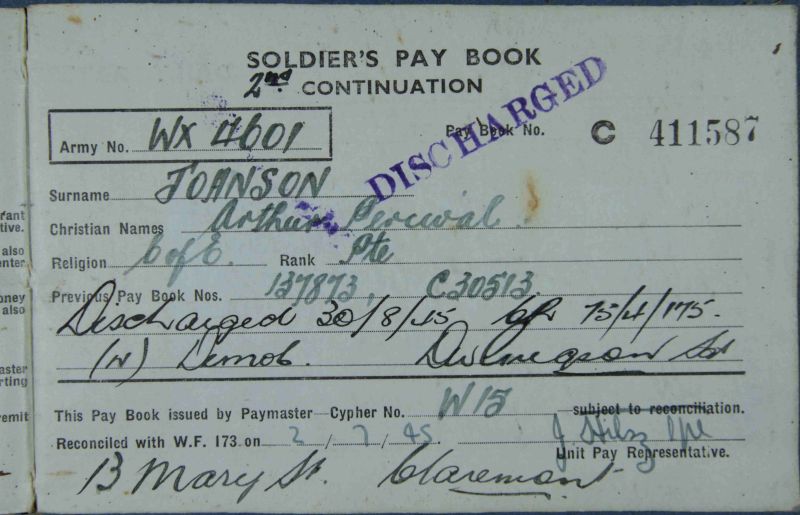 rant
tive.
also
enter
oney
also
aster
rting
remit
SOLDIER'S PAY BOOK
2nd CONTINUATION
DISCHARGED
Army No. WX 4601
Pay Book No. C 411587
Surname JOHNSON
Christian Names Arthur Percival
Religion C of E. Rank Pte
Previous Pay Book Nos. 137873, C30513
Discharged 30/8/45 75/4/175.
Demob.
This Pay Book issued by Paymaster—Cypher No. W15 subject to reconciliation.
Reconciled with W.F. 173 on 2 / 7 / 45
Unit Pay Representative.
13 Mary St. Claremont